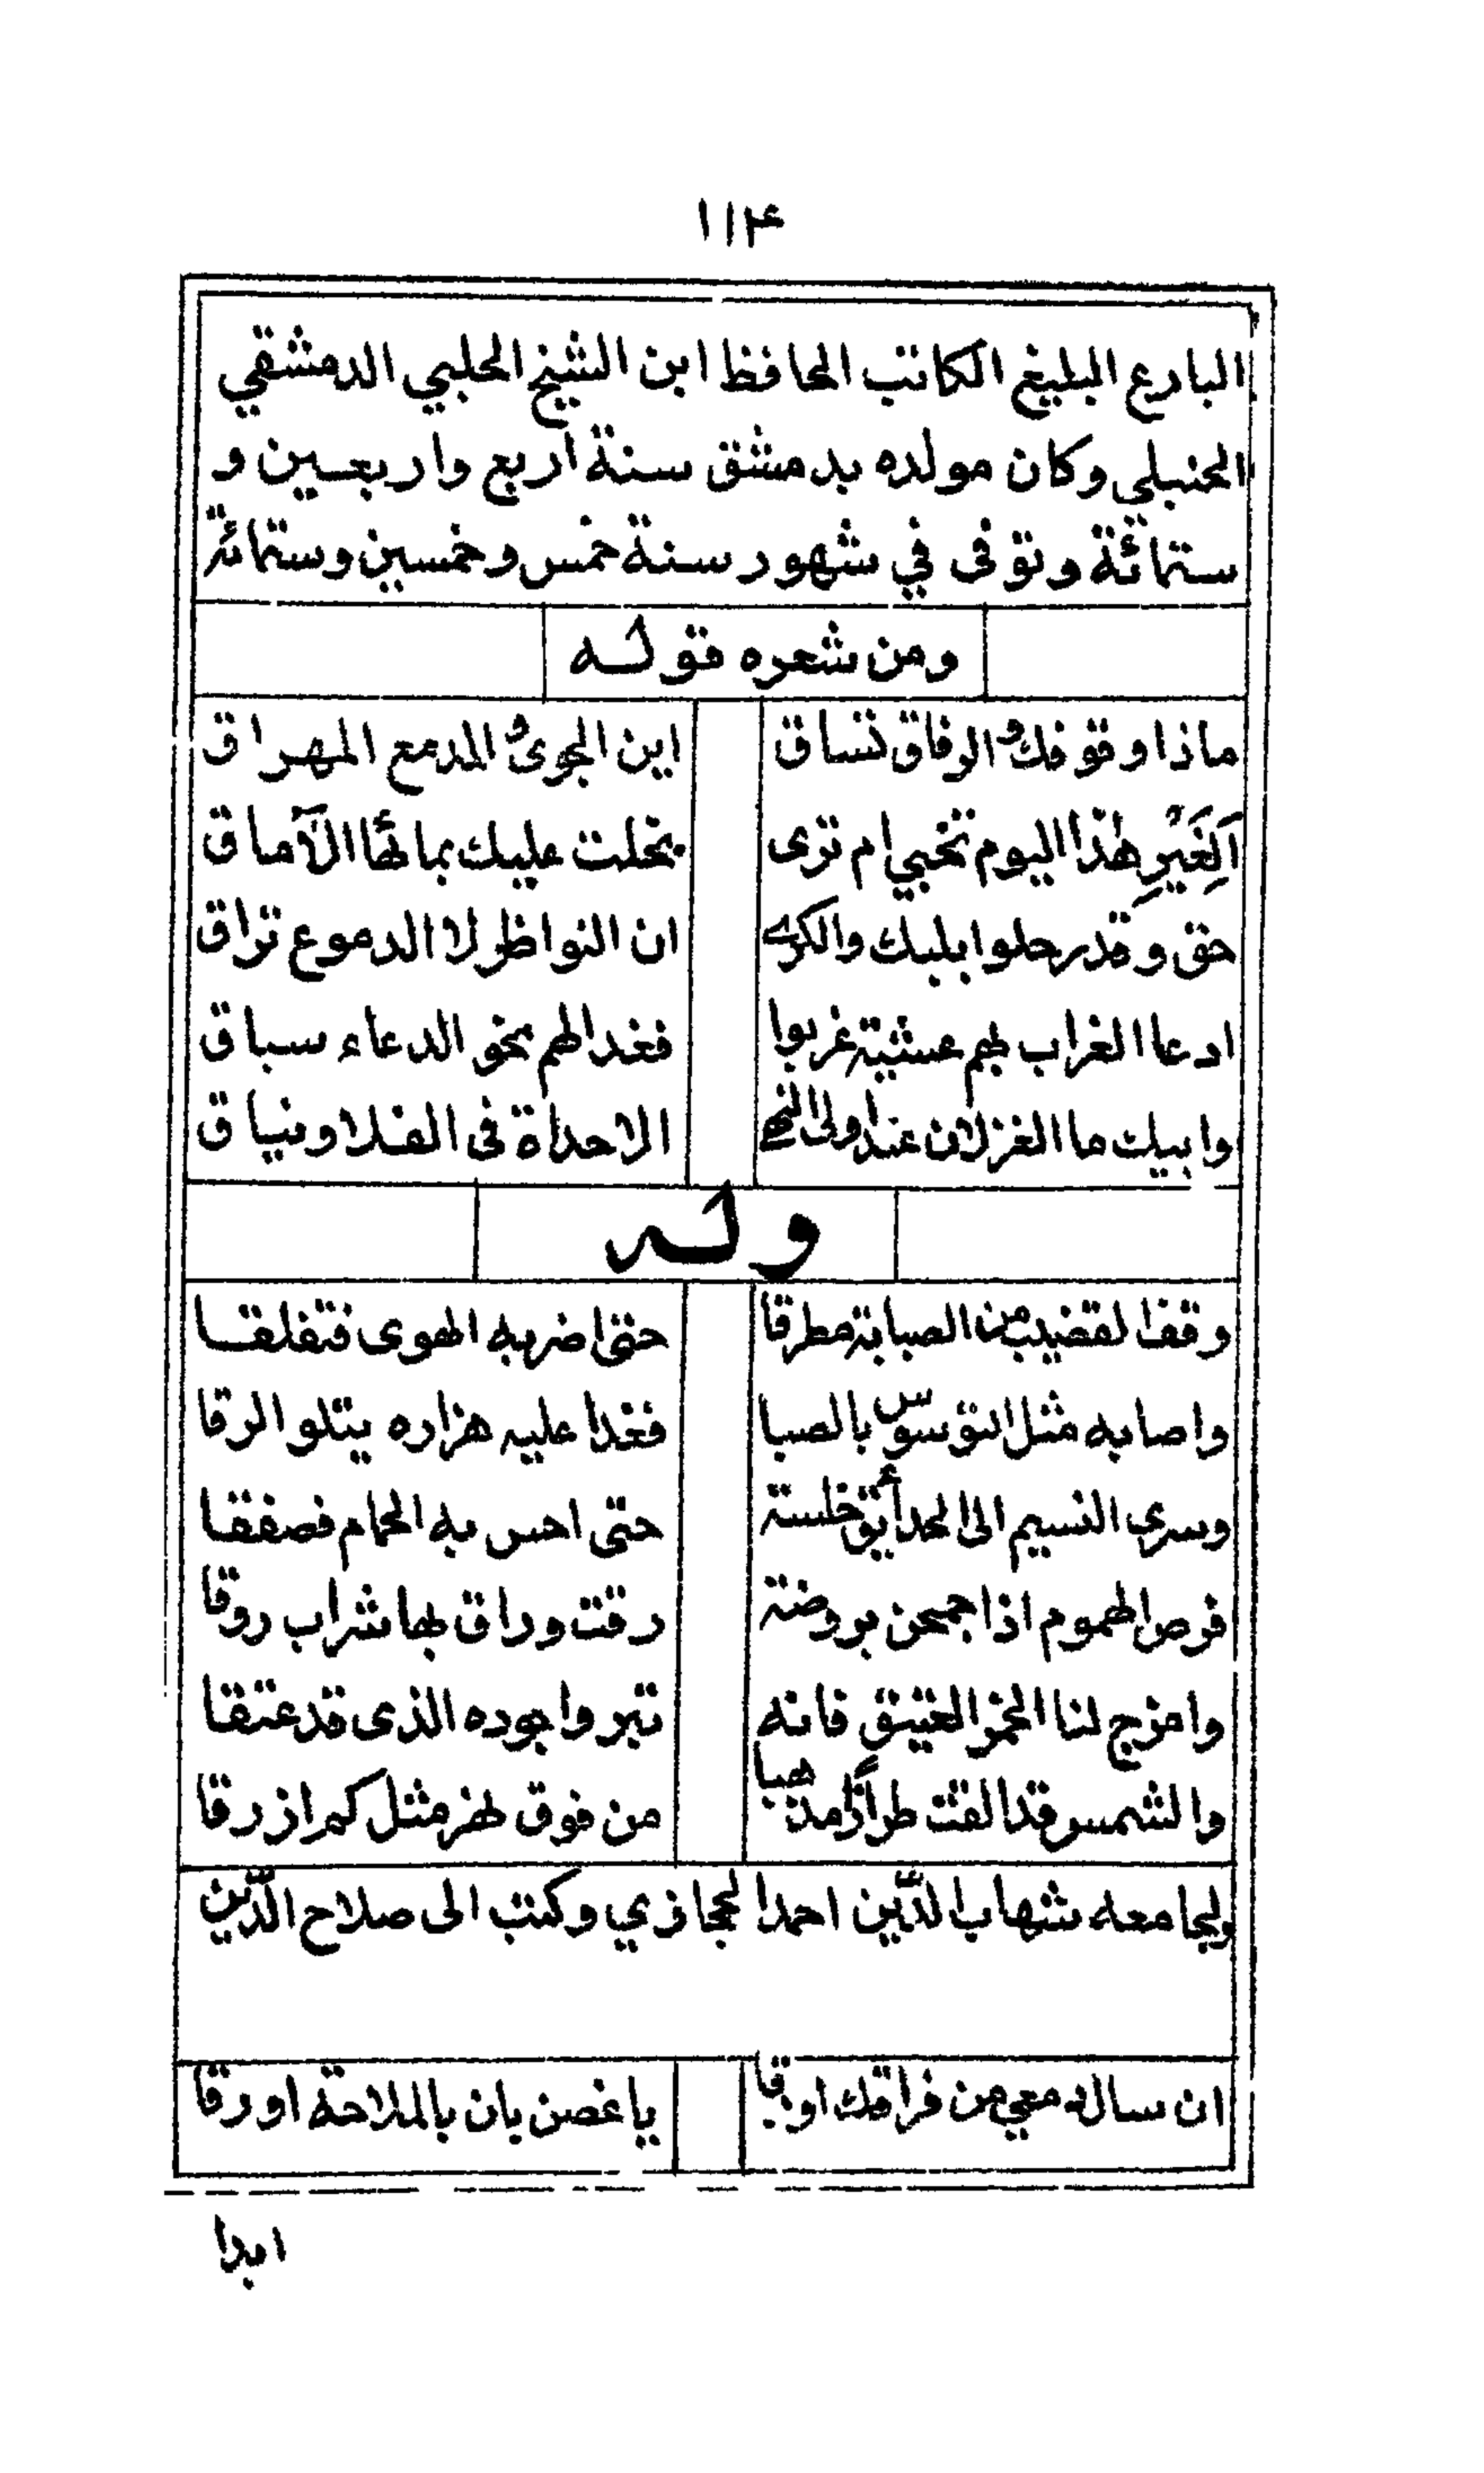 ١١۴
البارع البليغ الكاتب الحافظ ابن الشيخ الحلبي الدمشقي
الحنبلي وكان مولده بدمشق سنة اربع واربعين و
ستمائة وتوفى في شهور سنة خمس وخمسين وستمائة
ومن شعره قوله
ماذا وقوفك والرفاق تساق اين الجوى والمدمع المهراق
اَلِغَيْرِ هٰذا اليوم تخبي ام ترى بخلت عليك بمائها الآماق
حق وقد رحلوا بلبك والكرى ان النواظر لا الدموع تراق
ادعا الغراب بهم عشية غربوا فغدا لهم نحو الدعاء سباق
وابيك ما الغزلان عند اولى النهى الا حداة فى الفلا ونياق
وله
وقف القضيب من الصبابة مطرقا حتى اضر به الهوى فتقلقا
واصابه مثل التوسوس بالصبا فغدا عليه هزاره يتلو الرقا
وسرى النسيم الى الحدائق خلسة حتى احس به الحمام فصفقا
فرص الهموم اذا جمحن بروضة رقت وراق بها شراب روقا
وامزج لنا الخمر العتيق فانه تبر واجوده الذى قد عتقا
والشمس قد القت طرازًا مذهبا من فوق نهر مثل كم ازرقا
ولجامعه شهاب الدّين احمد الحجازي وكتب الى صلاح الدّين
ان سال دمعي من فراقك اورقا يا غصن بان بالملاحة اورقا
ابدا